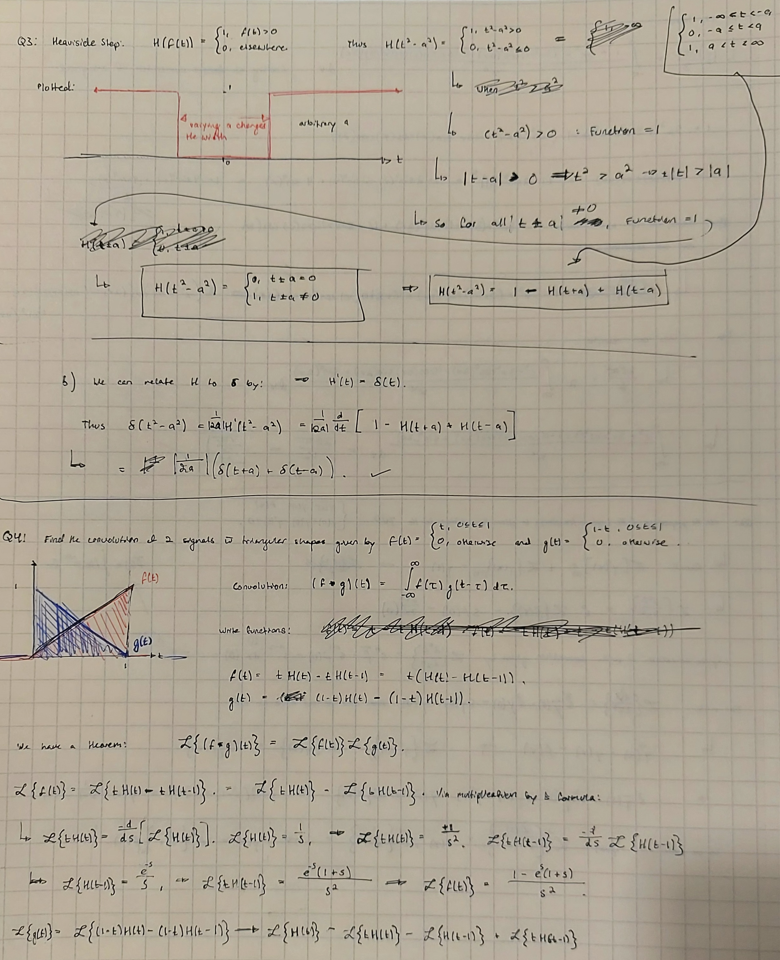 Q3: Heaviside Step: H(f(t)) = {1, f(t)>0 {0, elsewhere. Thus H(t²-a²) = {1, t²-a²>0 {0, t²-a²≤0 = {1, -∞≤t<-a {0, -a≤t≤a {1, a<t≤∞
Plotted:
1
varying a changes
the width
arbitrary a
0
t
↳ when
↳ (t²-a²) > 0 : Function = 1
↳ |t-a| > 0 ⇒ t² > a² → ±|t| > |a|
↳ so for all |t ± a| ≠0, Function = 1
↳ H(t²-a²) = {0, t±a=0 {1, t±a≠0 ⇒ H(t²-a²) = 1 - H(t+a) + H(t-a)
b) We can relate H to δ by: → H'(t) = δ(t).
Thus δ(t²-a²) = 1/|2a| H'(t²-a²) = 1/|2a| d/dt [1 - H(t+a) + H(t-a)]
↳ = |1/2a| (δ(t+a) + δ(t-a)). ✓
Q4: Find the convolution of 2 signals w triangular shapes given by f(t) = {t, 0≤t≤1 {0, otherwise and g(t) = {1-t, 0≤t≤1 {0, otherwise.
1
f(t)
g(t)
t
1
Convolution: (f * g)(t) = ∫_{-∞}^{∞} f(τ) g(t-τ) dτ.
Write functions:
f(t) = t H(t) - t H(t-1) = t(H(t) - H(t-1)).
g(t) = (1-t)H(t) - (1-t)H(t-1).
We have a theorem: ℒ{(f*g)(t)} = ℒ{f(t)}ℒ{g(t)}.
ℒ{f(t)} = ℒ{tH(t) - tH(t-1)}. = ℒ{tH(t)} - ℒ{tH(t-1)}. Via multiplication by t formula:
↳ ℒ{tH(t)} = -d/ds [ℒ{H(t)}]. ℒ{H(t)} = 1/s, ⇒ ℒ{tH(t)} = +1/s². ℒ{tH(t-1)} = -d/ds ℒ{H(t-1)}
↳ ℒ{H(t-1)} = e^{-s}/s, ⇒ ℒ{tH(t-1)} = e^{-s}(1+s)/s² ⇒ ℒ{f(t)} = 1 - e^{-s}(1+s)/s².
ℒ{g(t)} = ℒ{(1-t)H(t) - (1-t)H(t-1)} → ℒ{H(t)} - ℒ{tH(t)} - ℒ{H(t-1)} + ℒ{tH(t-1)}